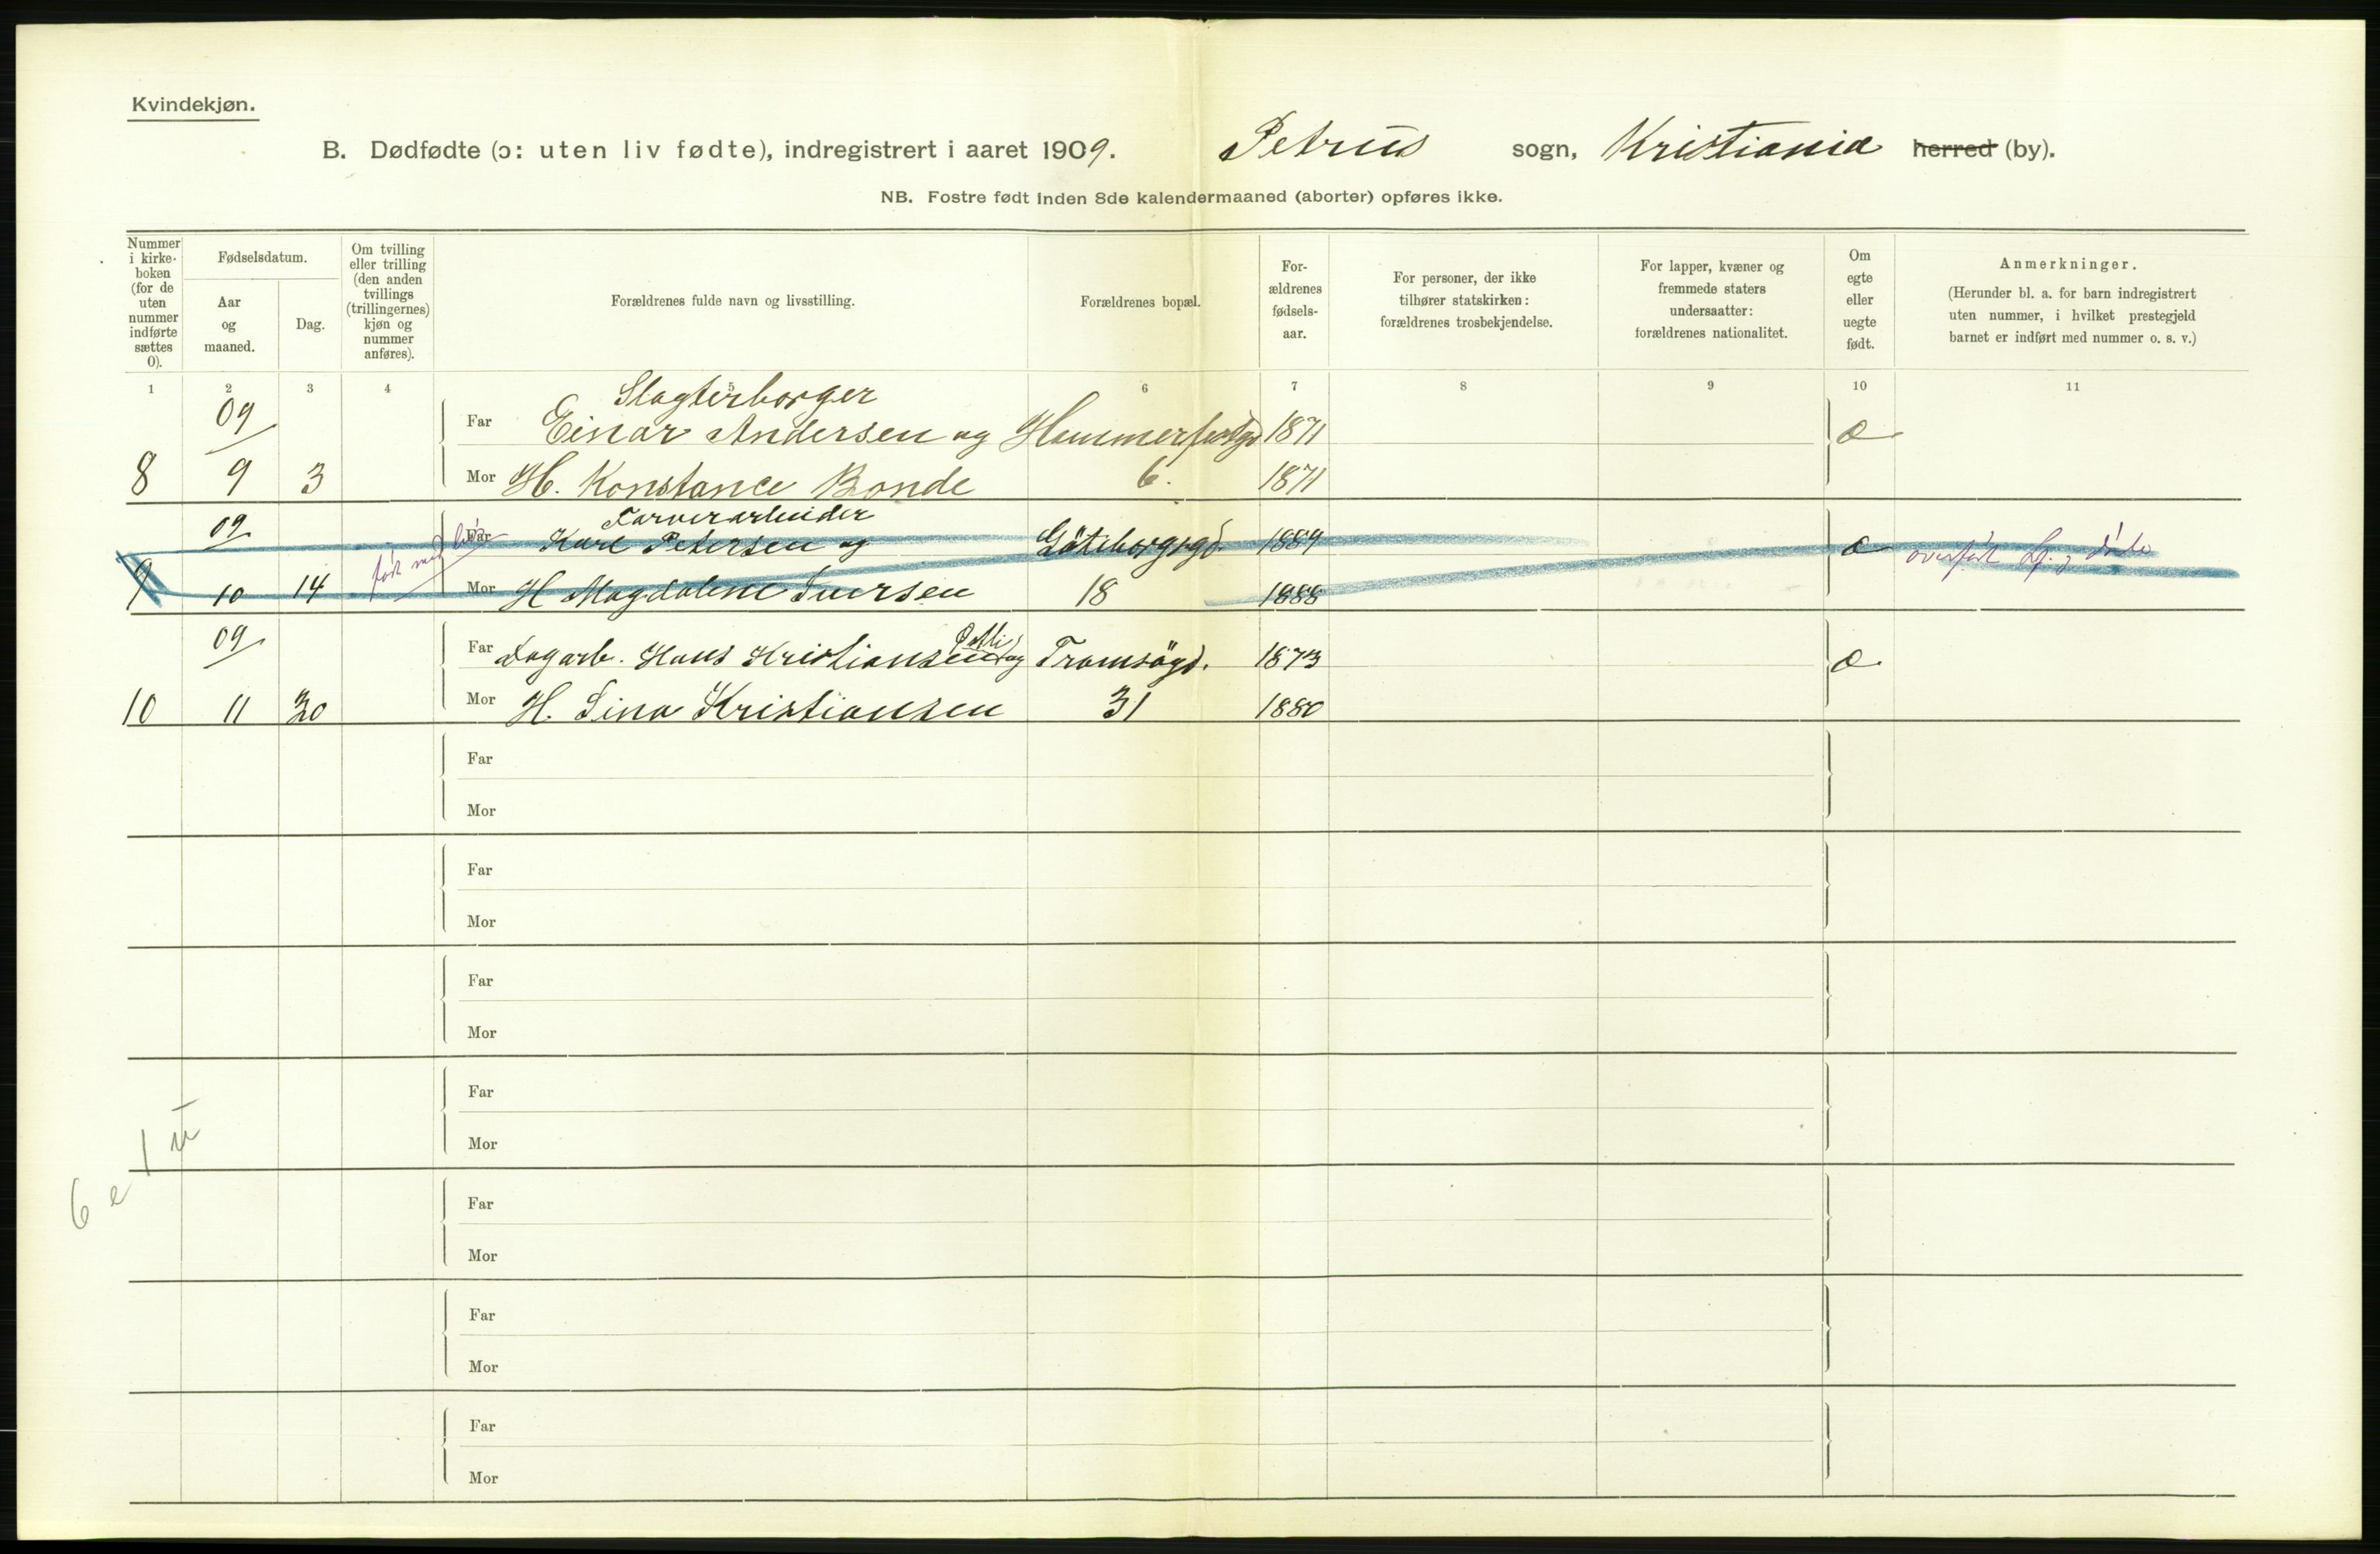 Kvindekjøn.
B. Dødfødte (ɔ: uten liv fødte), indregistrert i aaret 1909. Petrus sogn, Kristiania herred (by).
NB. Fostre født inden 8de kalendermaaned (aborter) opføres ikke.
Nummer
i kirke-
boken
(for de
uten
nummer
indførte
sættes
0).
Fødselsdatum.
Aar
og
maaned.
Dag.
Om tvilling
eller trilling
(den anden
tvillings
(trillingernes)
kjøn og
nummer
anføres).
Forældrenes fulde navn og livsstilling.
Forældrenes bopæl.
For-
ældrenes
fødsels-
aar.
For personer, der ikke
tilhører statskirken:
forældrenes trosbekjendelse.
For lapper, kvæner og
fremmede staters
undersaatter:
forældrenes nationalitet.
Om
egte
eller
uegte
født.
Anmerkninger.
(Herunder bl. a. for barn indregistrert
uten nummer, i hvilket prestegjeld
barnet er indført med nummer o. s. v.)
1 2 3 4 5 6 7 8 9 10 11
Slagterborger
09 Far Einar Andersen og Hammerfestgd 1871 æ
8 9 3 Mor H. Konstance Bonde 6. 1871
Farverarbeider
09 Far Karl Petersen og Göteborgsgd. 1889 æ
født med liv
9 10 14 Mor H Magdalene Iversen 18 1888
døde
09 Far Dagarb. Hans Kristiansen og Tromsögd. 1873 æ
10 11 30 Mor H. Lina Kristiansen 31 1880
Far
Mor
Far
Mor
Far
Mor
Far
Mor
Far
Mor
Far
Mor
Far
Mor
1 u
6 e